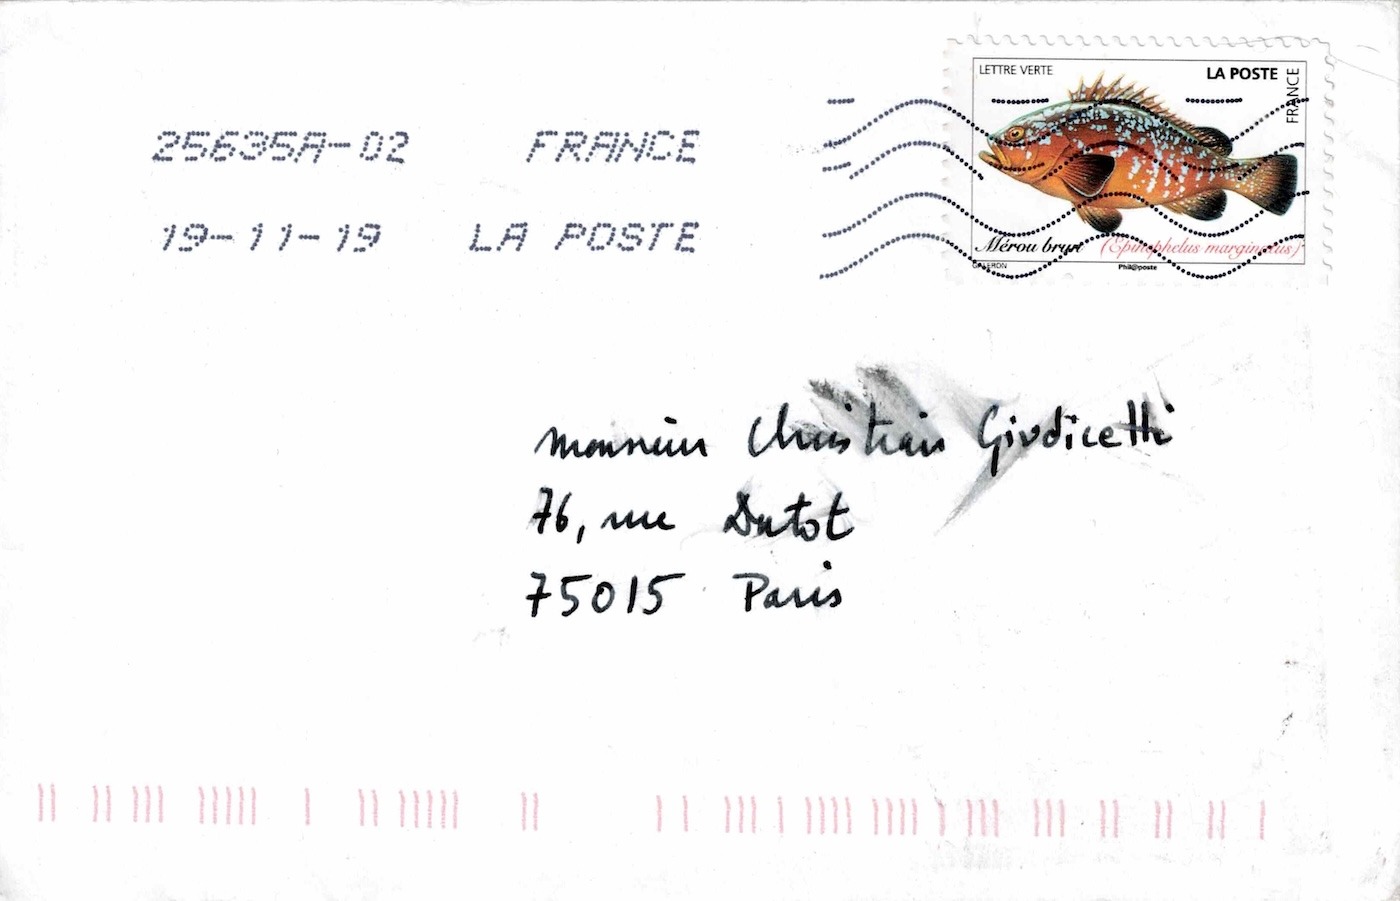 LETTRE VERTE LA POSTE
FRANCE
25635A-02 FRANCE
19-11-19 LA POSTE
Mérou brun (Epinephelus marginatus)
GALERON Phil@poste
Monsieur Christian Giudicelli
76, rue Dutot
75015 Paris